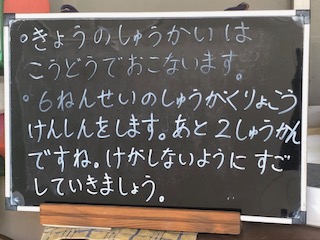 。きょうのしゅうかいは
こうどうでおこないます。
。6ねんせいのしゅうがくりょこう
けんしんをします。あと2しゅうかん
ですね。けがしないように すご
していきましょう。